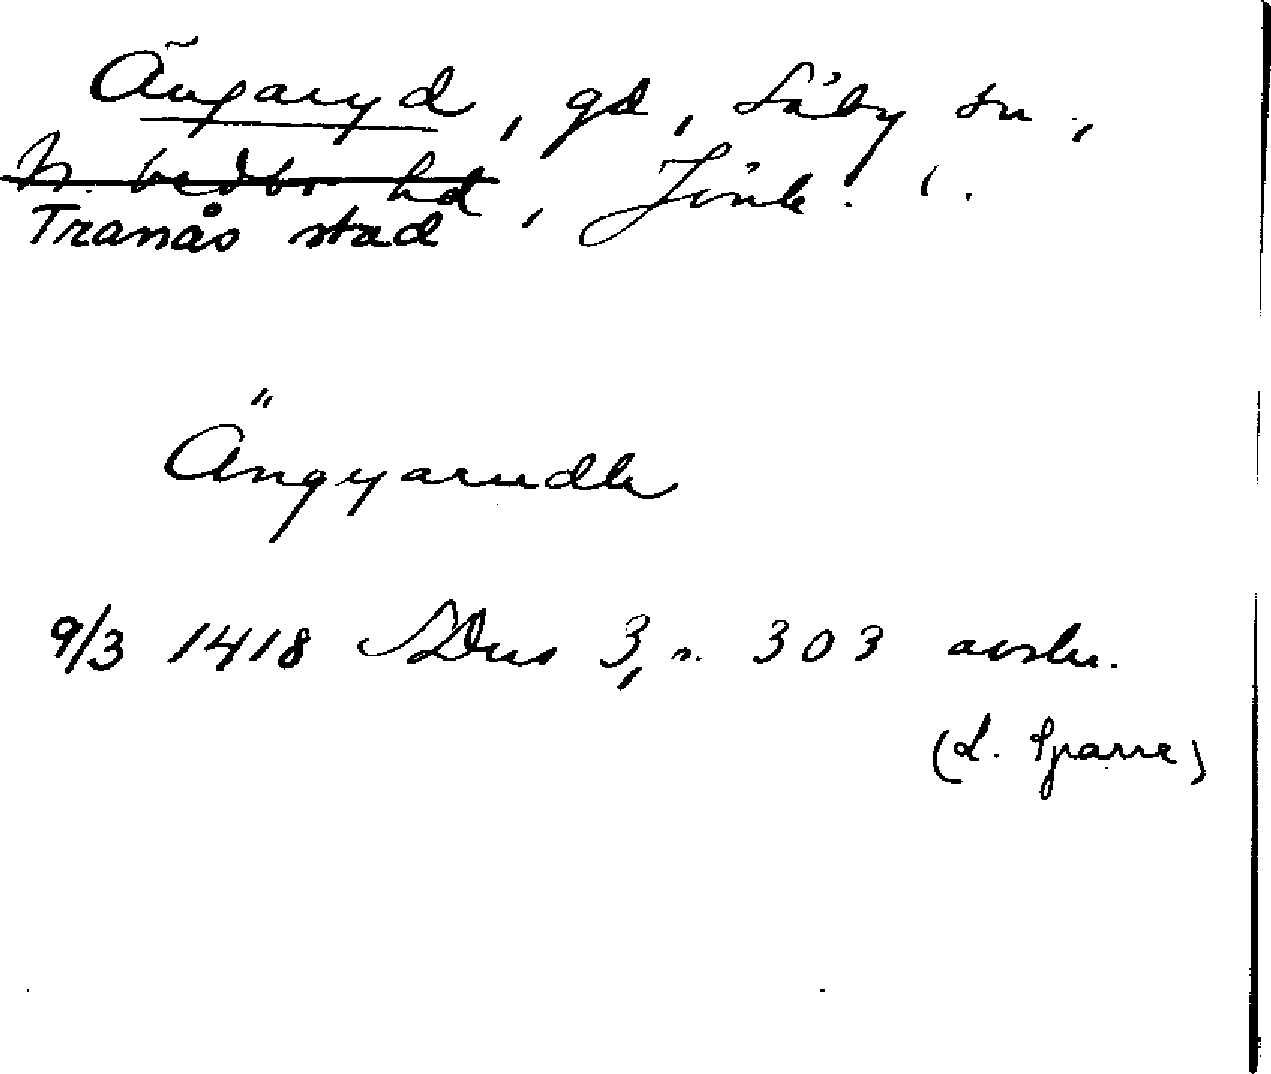 Ängaryd, gd, Säby sn.,
N. Vedbo hd, Jönk. l.
Tranås stad
Ängyarudh
9/3 1418 SDns 3, s. 303 avskr.
(L. Sparre)